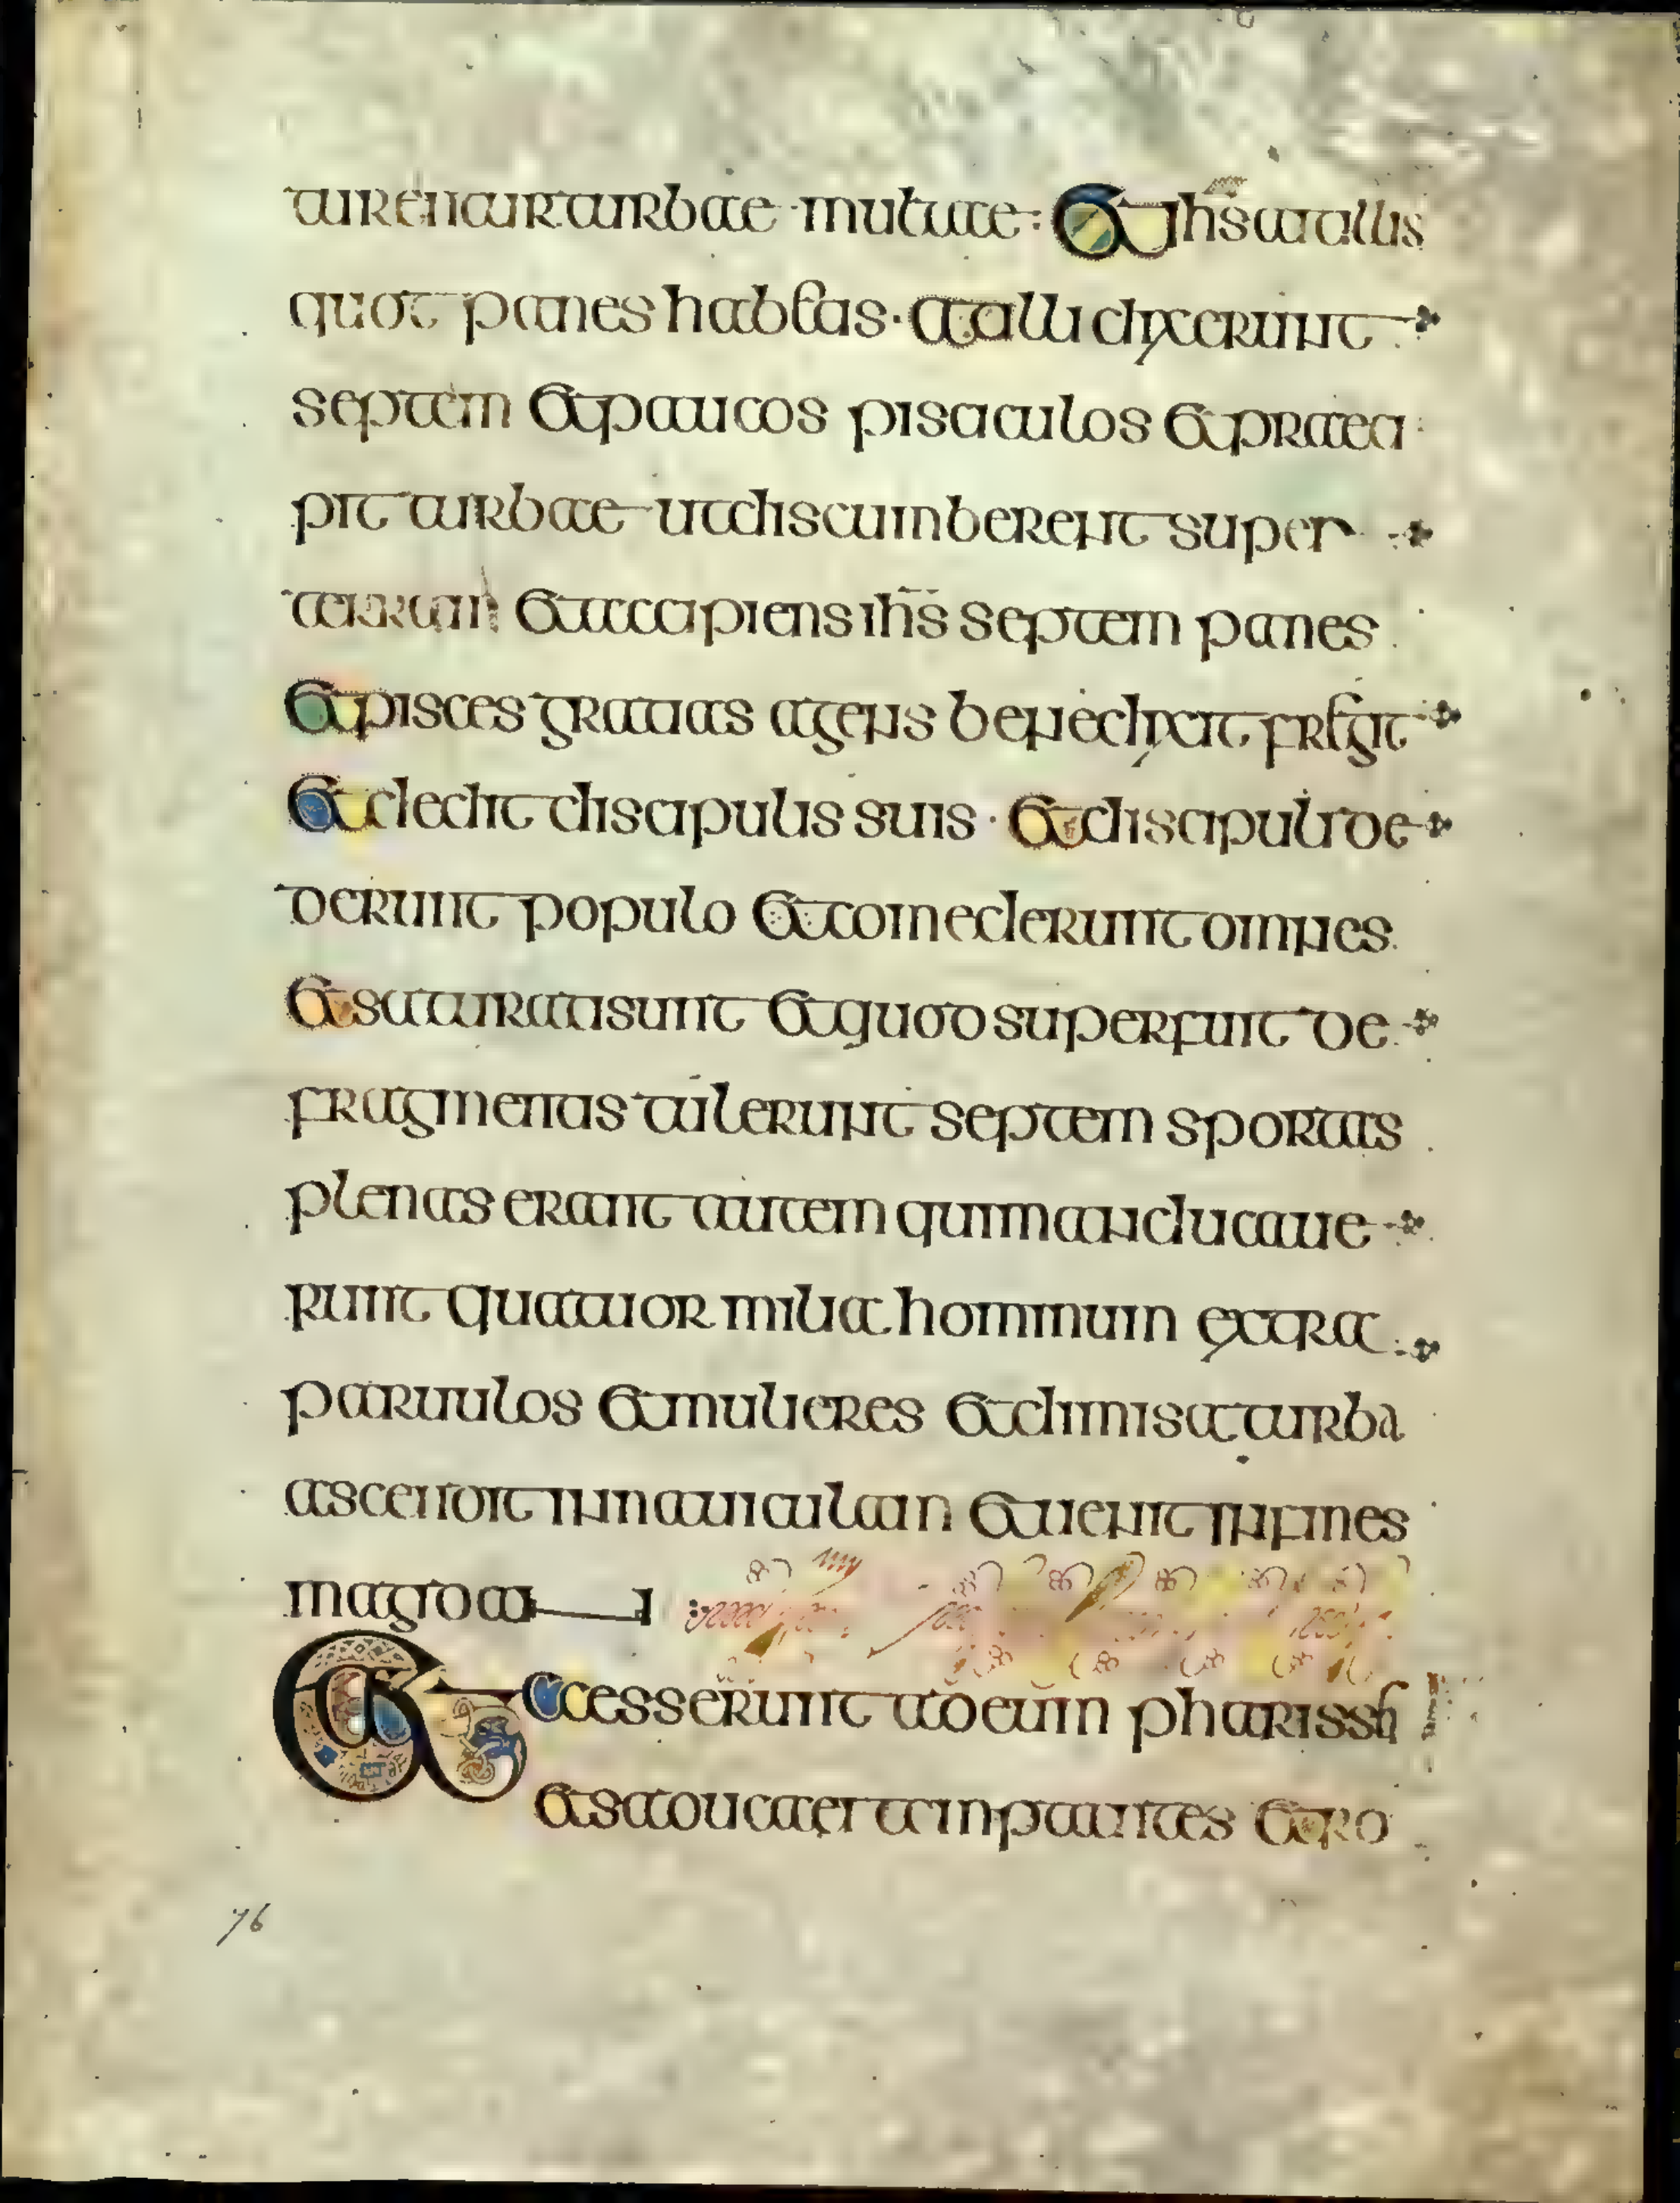 turentur turbae multae: Et ihs ait illis
quot panes habetis · at illi dixerunt
septem et paucos pisciculos et praeci
pit turbae ut discumberent super
terram et accipiens ihs septem panes
et pisces gratias agens benedixit fregit
et dedit discipulis suis · et discipuli de
derunt populo et comederunt omnes
et saturati sunt et quod superfuit de
fragmentis tulerunt septem sportas
plenas erant autem qui manducaue
runt quatuor milia hominum extra
paruulos et mulieres et dimisa turba
ascendit in nauiculam et uenit in fines
magdai
Et accesserunt ad eum pharissei
et saducaei temptantes et ro
76